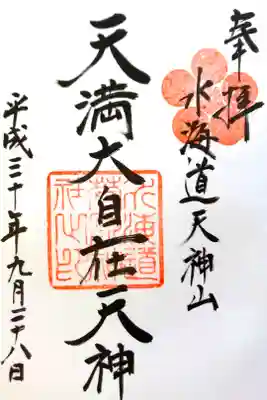 奉拝
水海道天神山
天満大自在天神
平成三十年九月二十八日